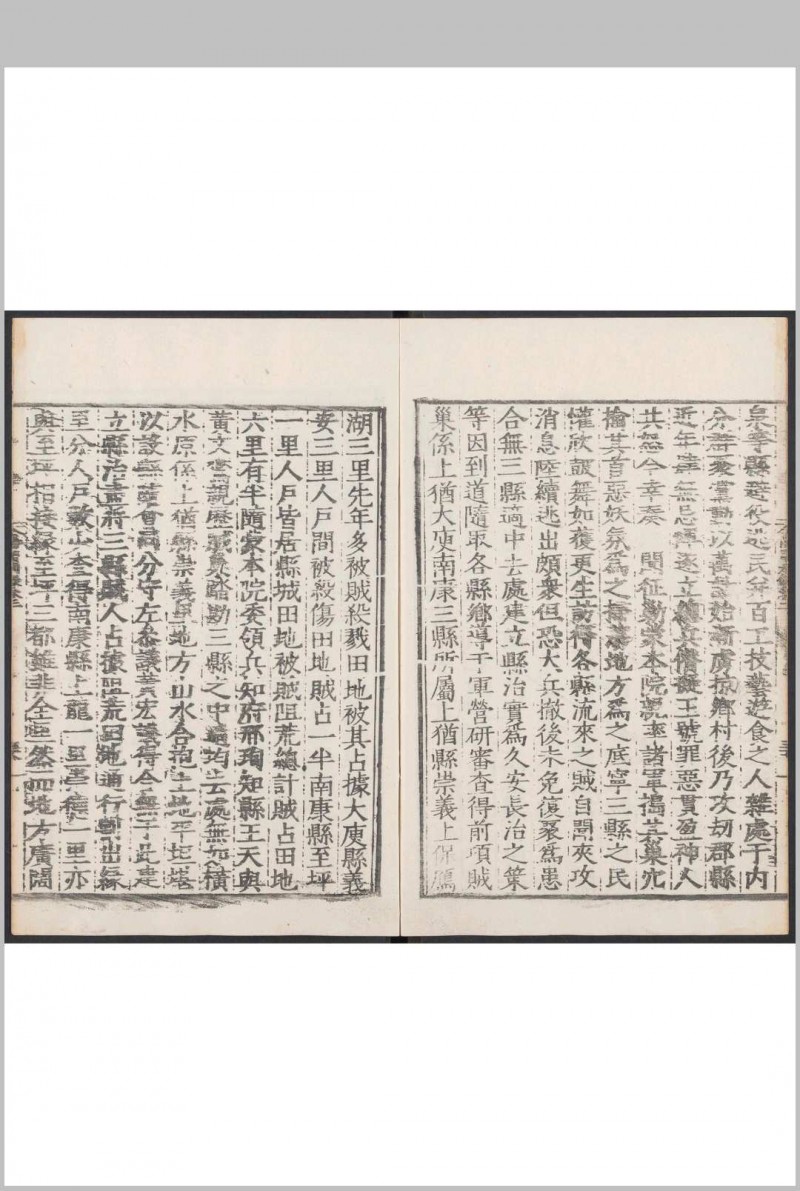 泉等縣避役逃民并百工技藝遊食之人雜處于內
分群聚黨動以萬計始漸虜掠鄉村後乃攻刼郡縣
近年肆無忌憚遂立總兵僭擬王號罪惡貫盈神人
共無今幸奏　聞征勦蒙本院親率諸軍搗其巢穴
擒其首惡妖氛爲之掃蕩地方爲之底寧三縣之民
懽欣鼓舞如獲更生訪得各縣流來之賊自聞夾攻
消息陸續逃出頗衆但恐大兵撤後未免復聚爲患
合無三縣適中去處建立縣治實爲久安長治之策
等因到道隨取各縣鄉導于軍營研審查得前項賊
巢係上猶大庾南康三縣所屬上猶縣崇義上保鴈
湖三里先年多被賊殺戮田地被其占據大庾縣義
安三里人戶間被殺傷田地賊占一半南康縣至坪
一里人戶皆居縣城田地被賊阻荒總計賊占田地
六里有半隨蒙本院委領兵知府邢珣知縣王天與
黃文鸑親歷賊巢踏勘三縣之中適均去處無如橫
水原係上猶縣崇義里地方山水合抱土地平坦堪
以設縣隨會同分守左叅議黃宏議得合無于此建
立縣治盡將三縣賊人占據阻荒田地通行割出緣
里分人戶數少查得南康縣上龍一里崇德一里亦
與至坪相接緣至坪三都雖非全里然而地方廣闊